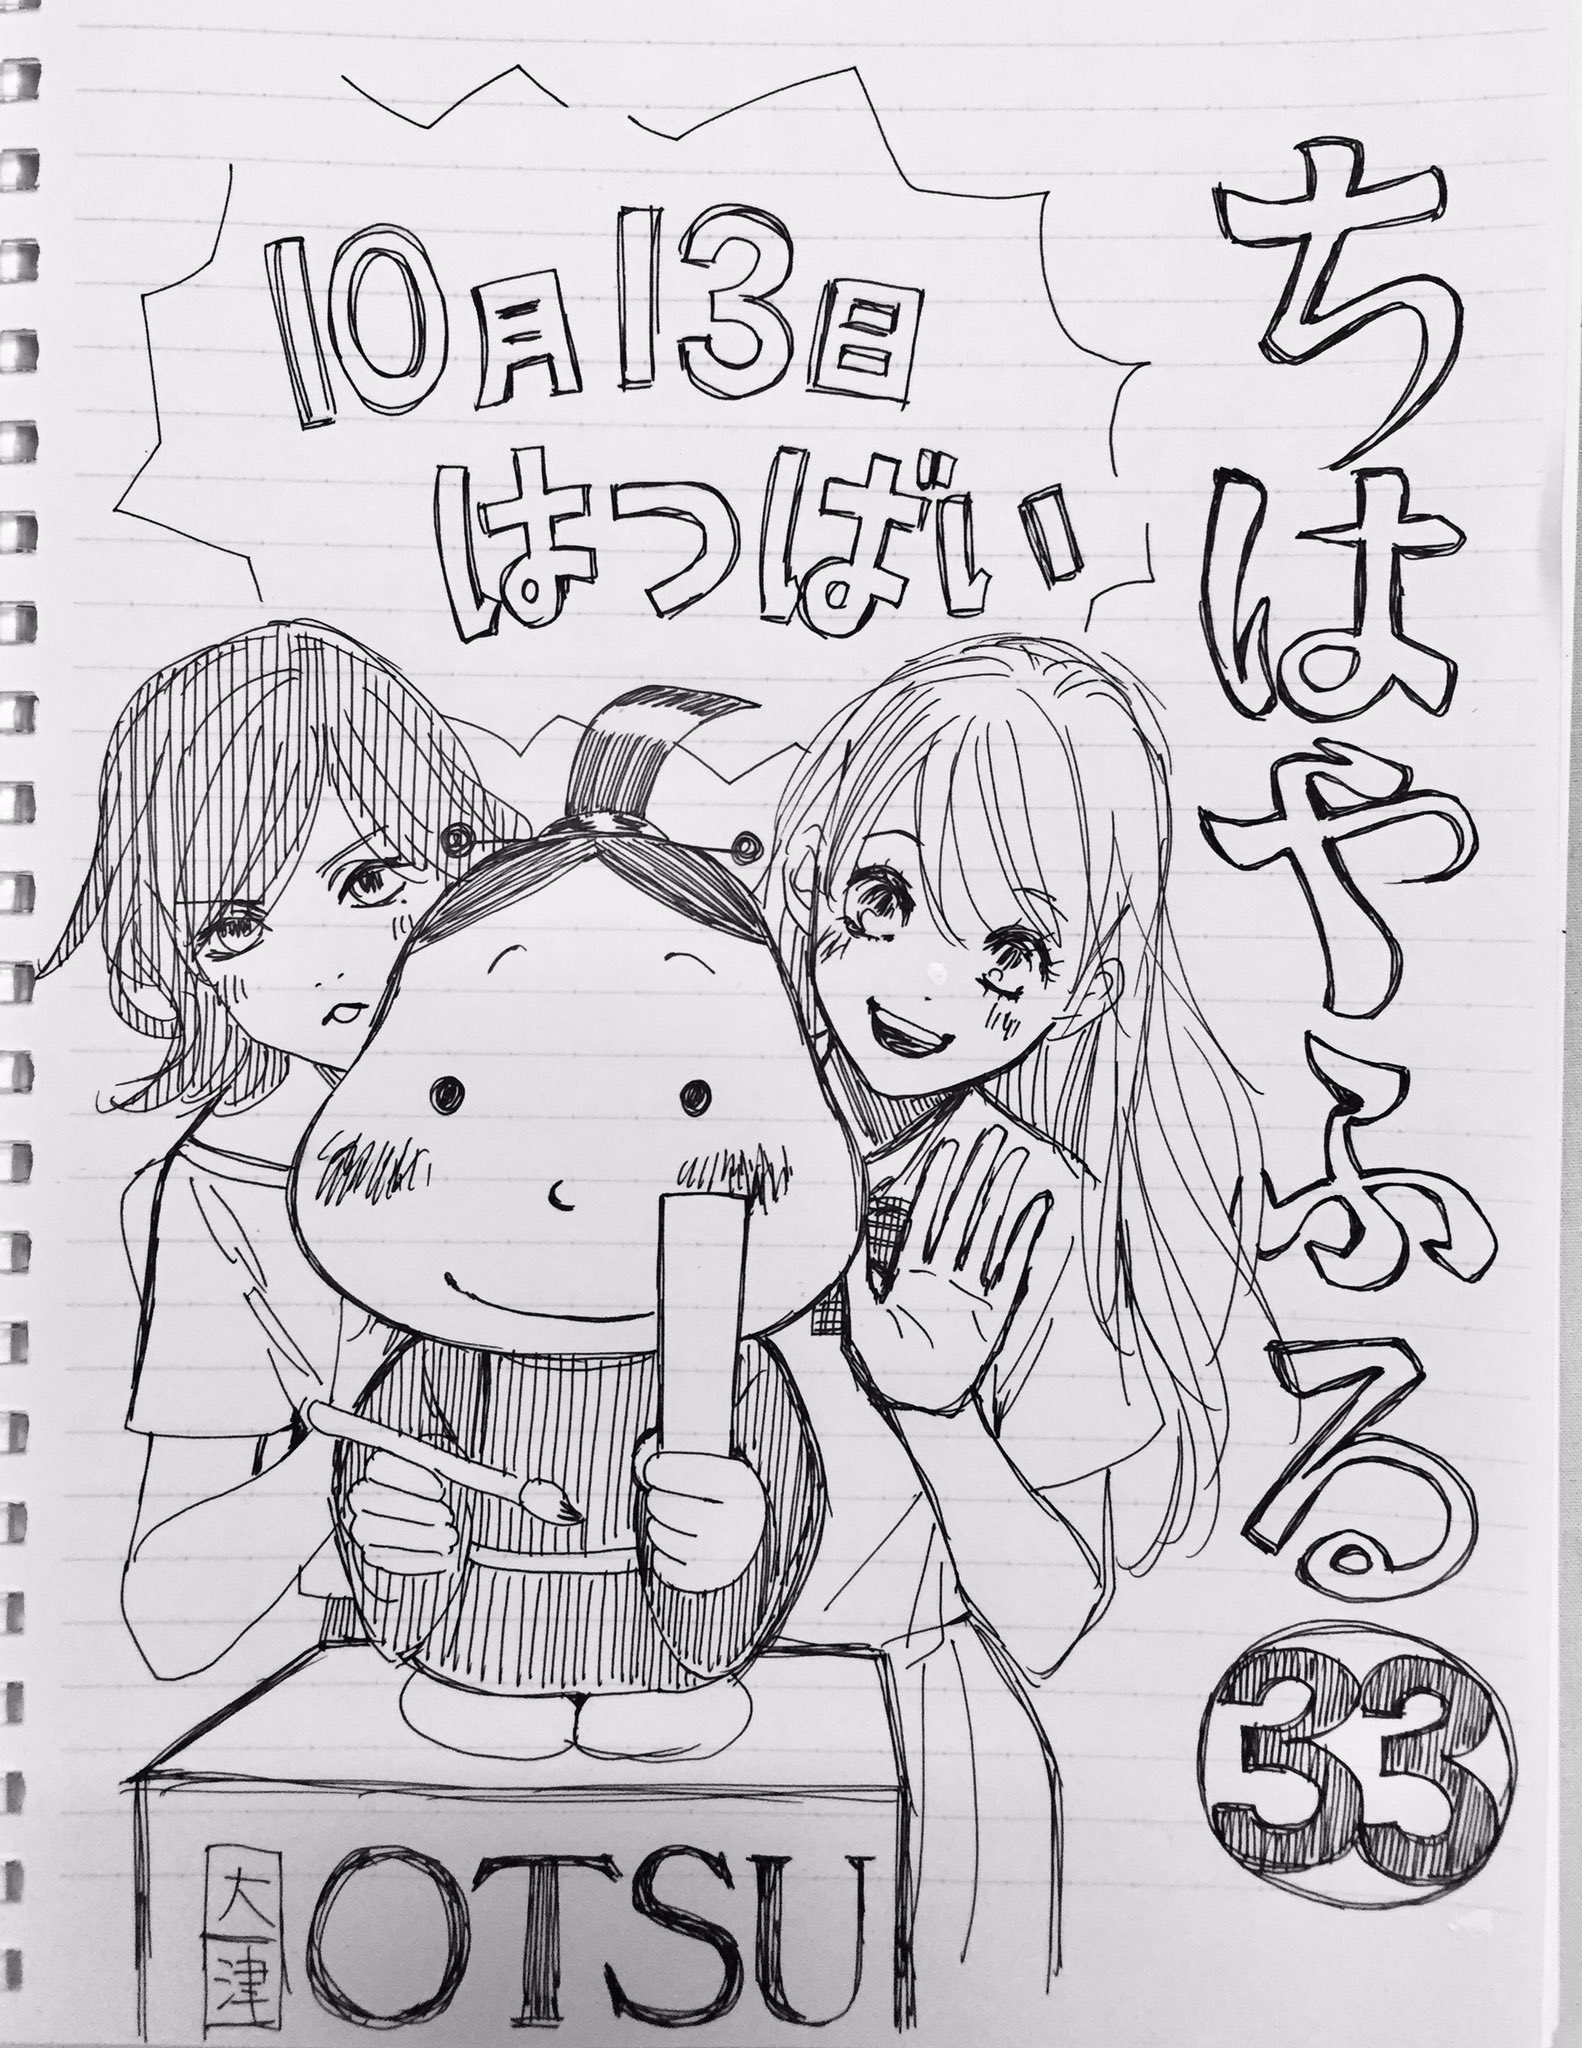 ちはやふる
33
10月13日
はつばい
大津
OTSU